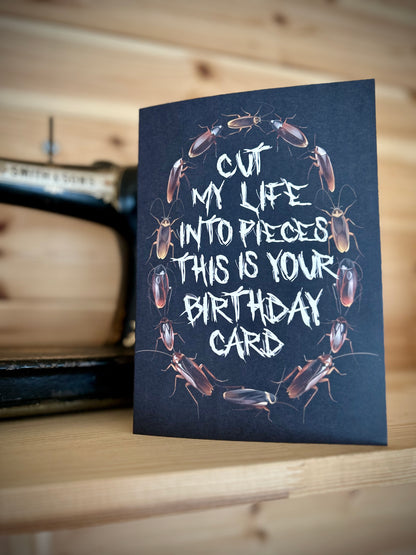 CUT
MY LIFE
INTO PIECES
THIS IS YOUR
BIRTHDAY
CARD